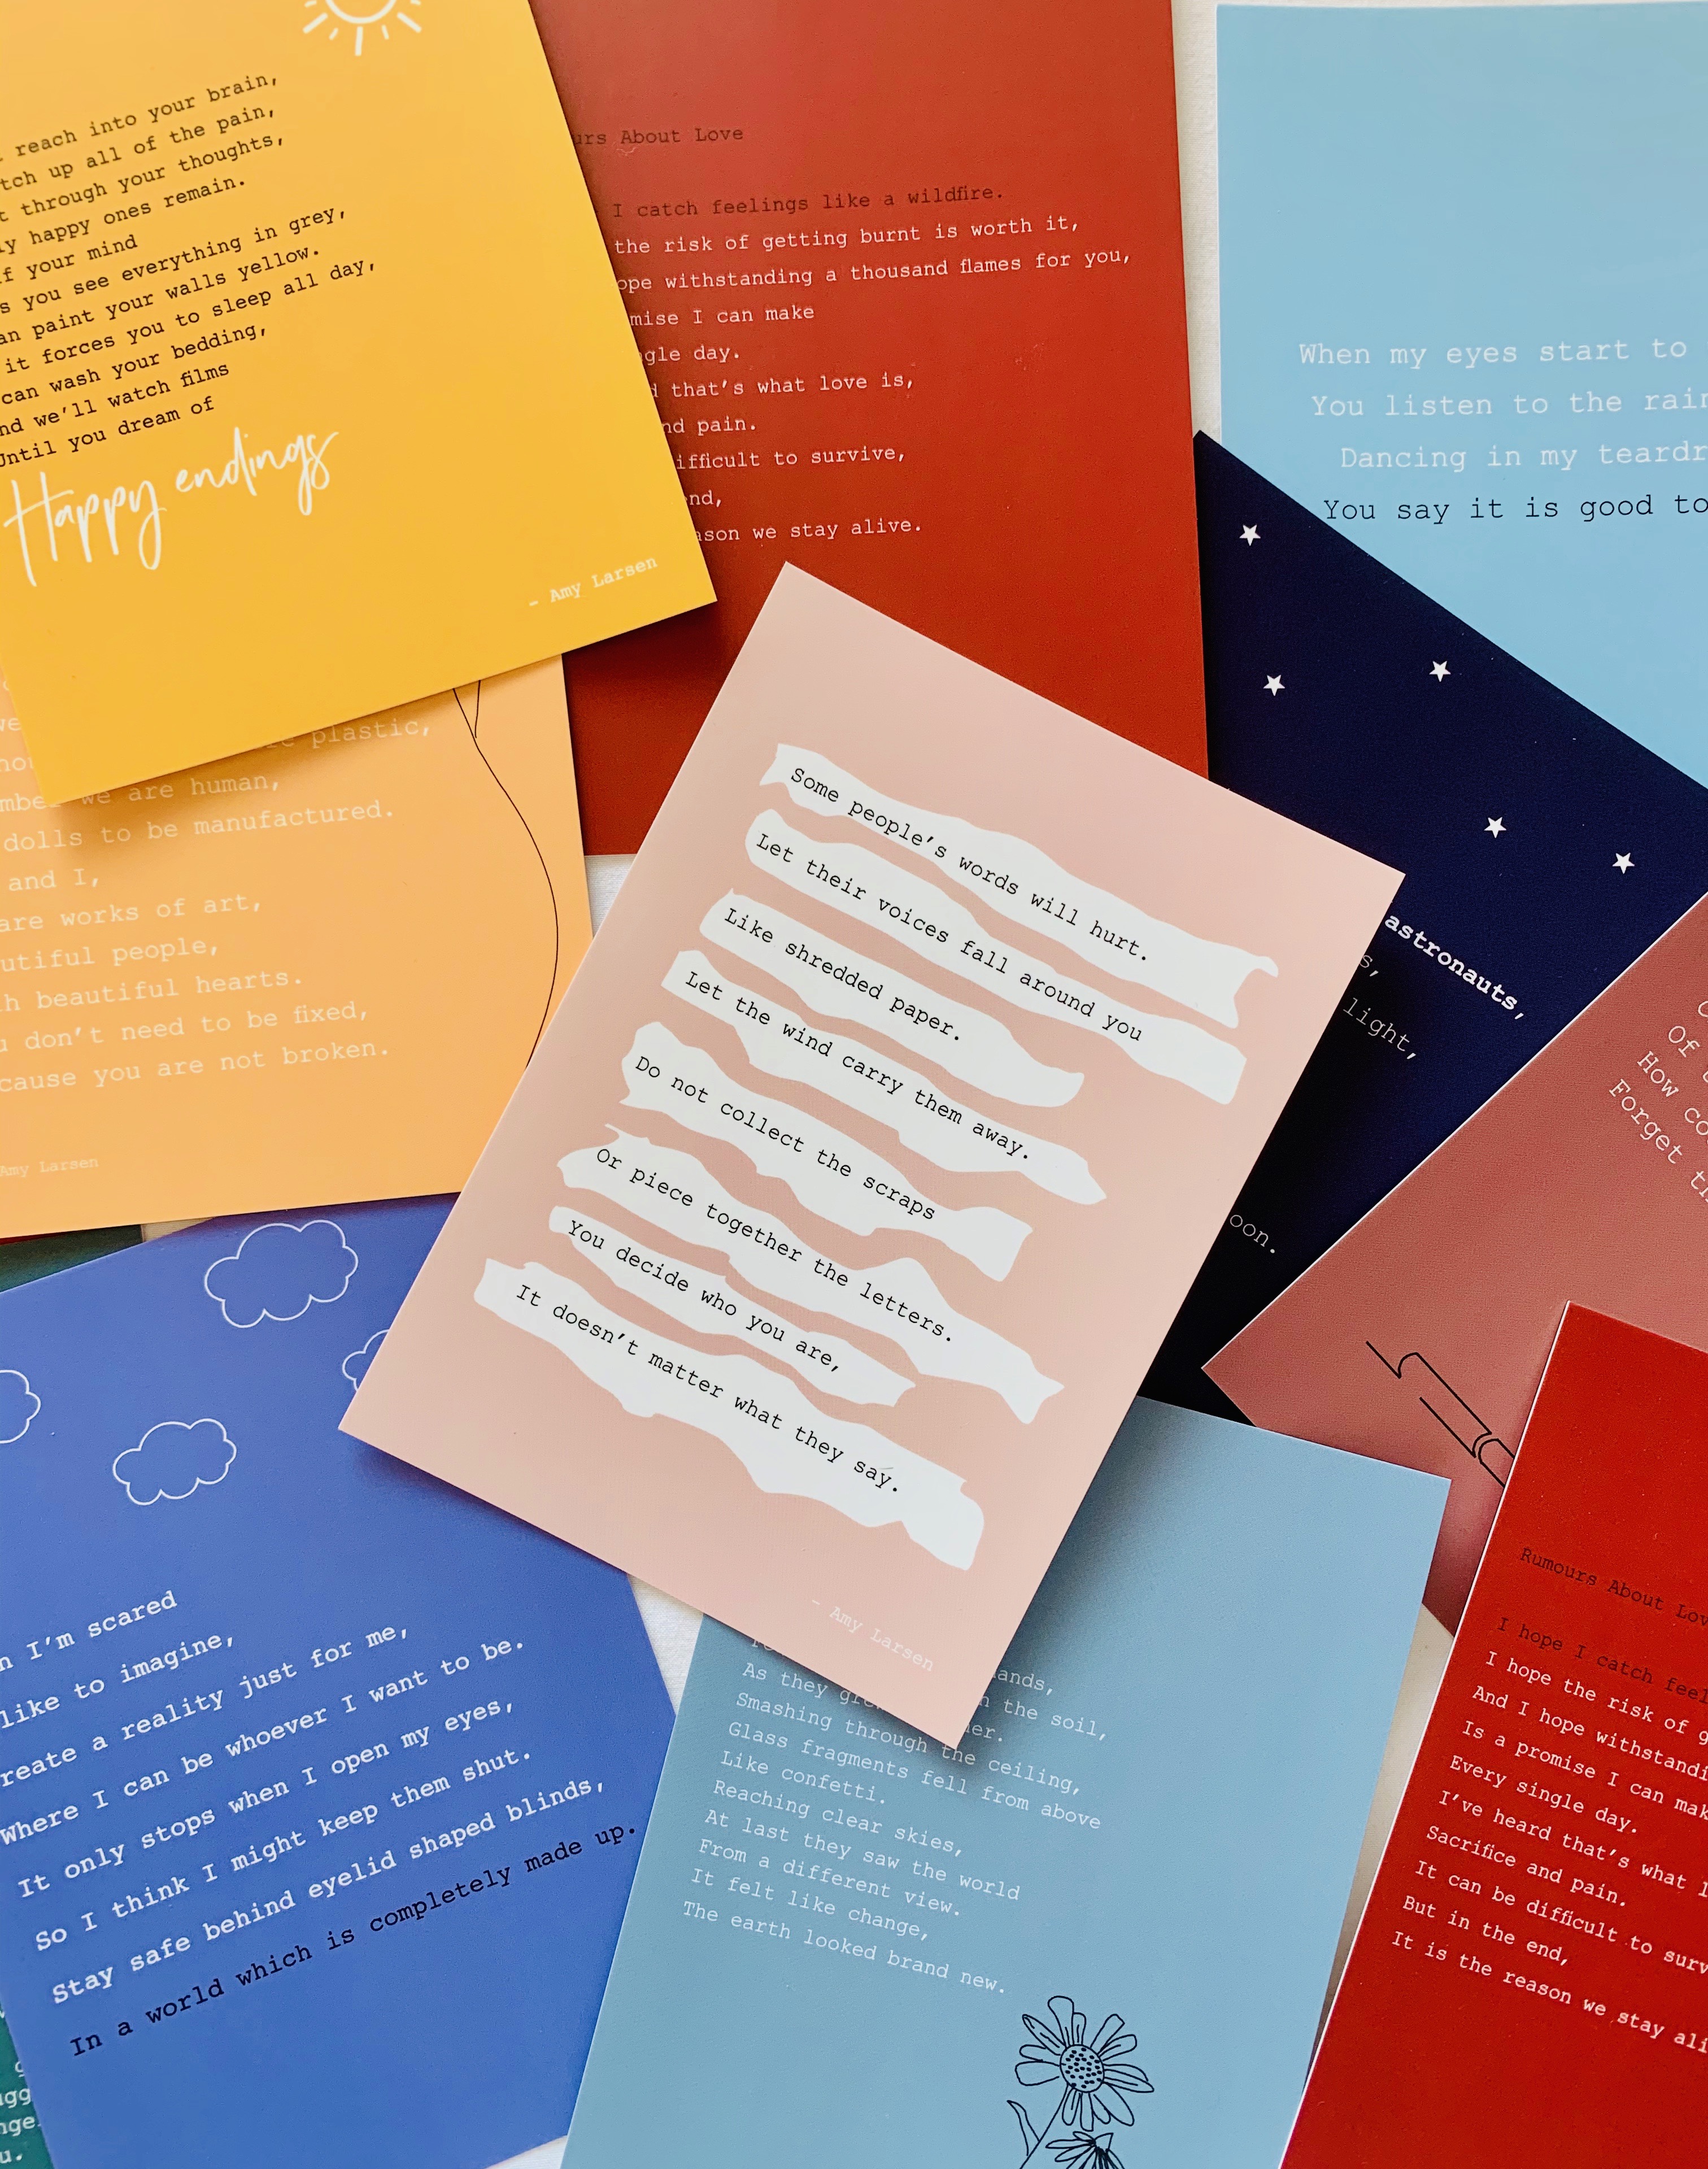 reach into your brain,
up all of the pain,
through your thoughts,
happy ones remain.
your mind
you see everything in grey,
paint your walls yellow.
it forces you to sleep all day,
can wash your bedding,
we'll watch films
Until you dream of
Happy endings
– Amy Larsen
About Love
I catch feelings like a wildfire.
the risk of getting burnt is worth it,
withstanding a thousand flames for you,
I can make
day.
that's what love is,
pain.
to survive,
we stay alive.
When my eyes start to
You listen to the
Dancing in my
You say it is good to
plastic,
we are human,
dolls to be manufactured.
and I,
are works of art,
people,
beautiful hearts.
don't need to be fixed,
you are not broken.
Amy Larsen
Some people's words will hurt.
Let their voices fall around you
Like shredded paper.
Let the wind carry them away.
Do not collect the scraps
Or piece together the letters.
You decide who you are,
It doesn't matter what they say.
– Amy Larsen
astronauts,
light,
Of
How
Forget
I'm scared
like to imagine,
a reality just for me,
Where I can be whoever I want to be.
It only stops when I open my eyes,
So I think I might keep them shut.
Stay safe behind eyelid shaped blinds,
In a world which is completely made up.
As they the soil,
Smashing through the ceiling,
Glass fragments fell from above
Like confetti.
Reaching clear skies,
At last they saw the world
From a different view.
It felt like change,
The earth looked brand new.
Rumours About
I hope I catch
I hope the risk of
And I hope
Is a promise I can
Every single day.
I've heard that's what
Sacrifice and pain.
It can be difficult to
But in the end,
It is the reason we stay